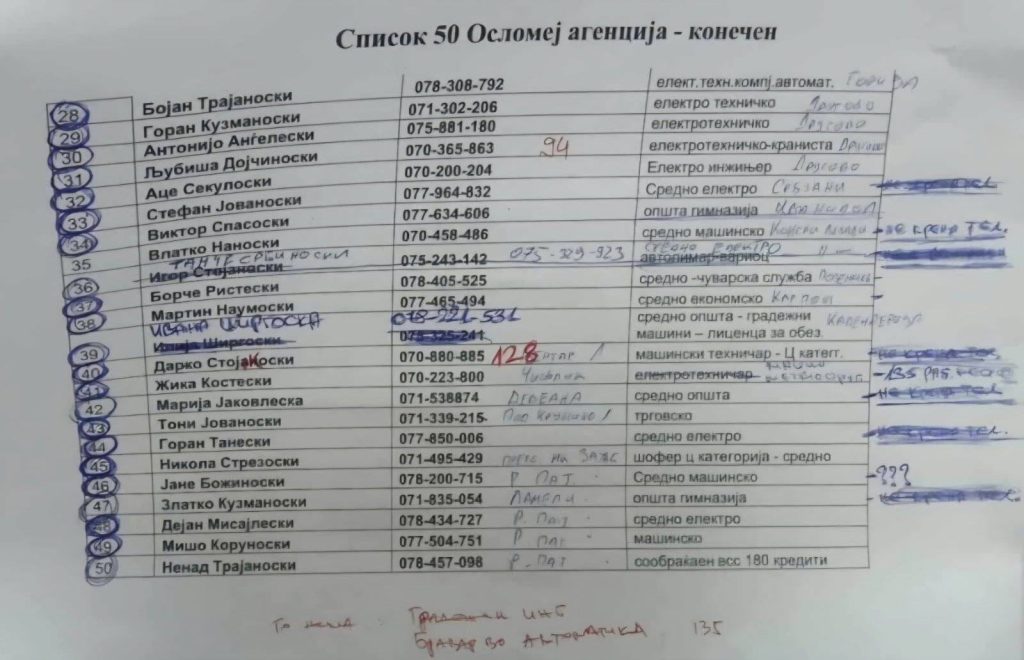 Список 50 Осломеј агенција - конечен
28 Бојан Трајаноски 078-308-792 елект.техн.компј.автомат.
29 Горан Кузманоски 071-302-206 електро техничко Другово
30 Антонијо Анѓелески 075-881-180 електротехничко Другово
31 Љубиша Дојчиноски 070-365-863 94 електротехничко-краниста
32 Аце Секулоски 070-200-204 Електро инжињер Другово
33 Стефан Јованоски 077-964-832 Средно електро Србјани
34 Виктор Спасоски 077-634-606 општа гимназија
35 Влатко Наноски 070-458-486 средно машинско - не крена тел.
36 Танче Србиноски Игор Стојаноски 075-243-142 075-329-923 средно електро автолимар-вариоц
37 Борче Ристески 078-405-525 средно -чуварска служба
38 Мартин Наумоски 077-465-494 средно економско
Ивана Ширгоска 078-221-531 средно општа - градежни
39 Илија Ширгоски 075-325-241 машини – лиценца за обез.
40 Дарко Стојакоски 070-880-885 128 машински техничар - Ц катег.
41 Жика Костески 070-223-800 електротехничар
42 Марија Јаковлеска 071-538874 средно општа
43 Тони Јованоски 071-339-215 трговско
44 Горан Танески 077-850-006 средно електро
45 Никола Стрезоски 071-495-429 шофер ц категорија - средно
46 Јане Божиноски 078-200-715 Р. Пат Средно машинско - ???
47 Златко Кузманоски 071-835-054 општа гимназија
48 Дејан Мисајлески 078-434-727 Р. Пат средно електро
49 Мишо Коруноски 077-504-751 Р. Пат машинско
50 Ненад Трајаноски 078-457-098 Р. Пат сообраќаен всс 180 кредити
инг
во Автоматика 135